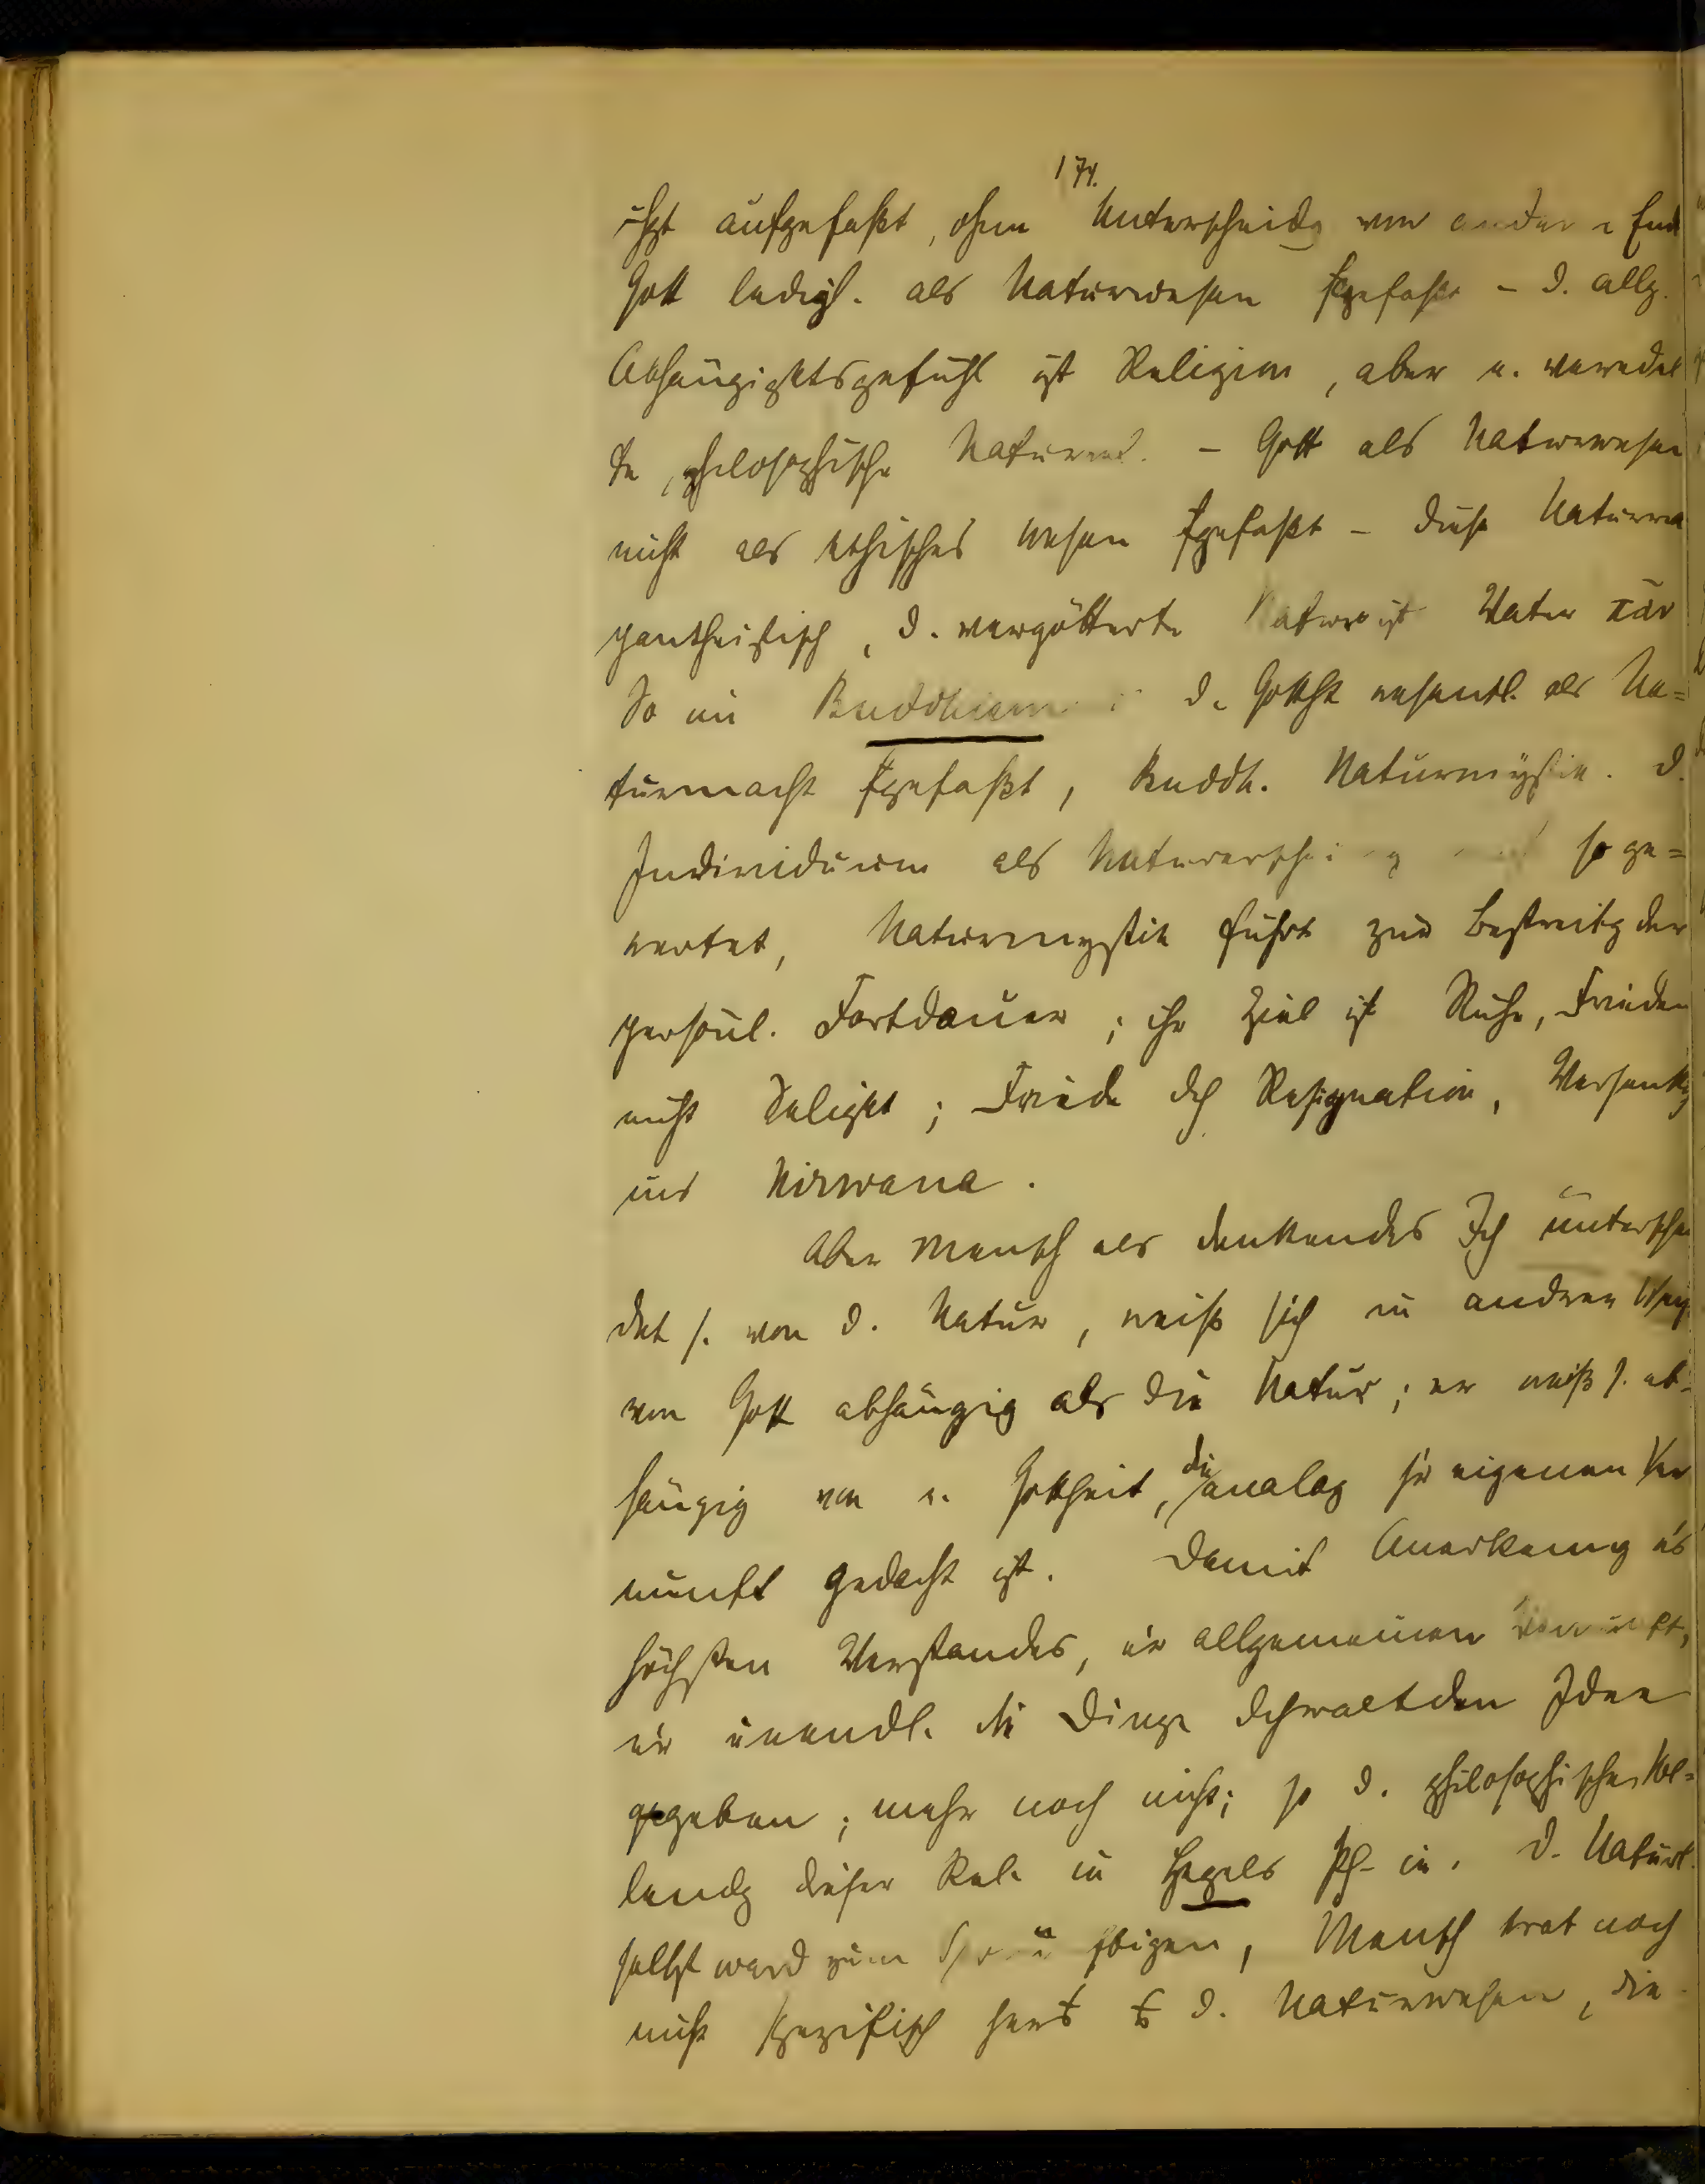 174.
aufgefaßt, ohne Unterscheidg von andern End
Gott ledigl. als Naturwesen gefaßt – d. allg.
Abhängigktsgefühl ist Religion, aber e. veredel
te, philosophische – Gott als Naturwesen
nicht als ethisches Wesen gefaßt – diese
pantheistisch, d. vergötterte Natur ist Vater
So im Buddhism d. Gotth. wesentl. als Na=
turmacht gefaßt, Buddh. Naturmystik. d.
Individuum als so ge=
wertet, Naturmystik führt zur Bestreitg der
persönl. Fortdauer; ihr Ziel ist Ruhe, Frieden
nicht Seligkt; Friede dch Resignation, Versenkg
ins Nirwana.
Aber Mensch als denkendes Ich unterschei
det s. von d. Natur, weiß sich in andrer
von Gott abhängig als die Natur; er weiß s. ab-
hängig von e. Gottheit, die analog sr eigenen Ver
nunft gedacht ist. Damit Anerkennung es
höchsten Verstandes, er allgemeinen Vernunft,
er unendl. die Dinge dchwaltden Idee
gegeben; mehr noch nicht; so d. philosophische Vol=
lendg dieser Rel. in Hegels Ph- ie. D. Natürl.
selbst ward zum, Mensch trat noch
nicht spezifisch d. Naturwesen, die